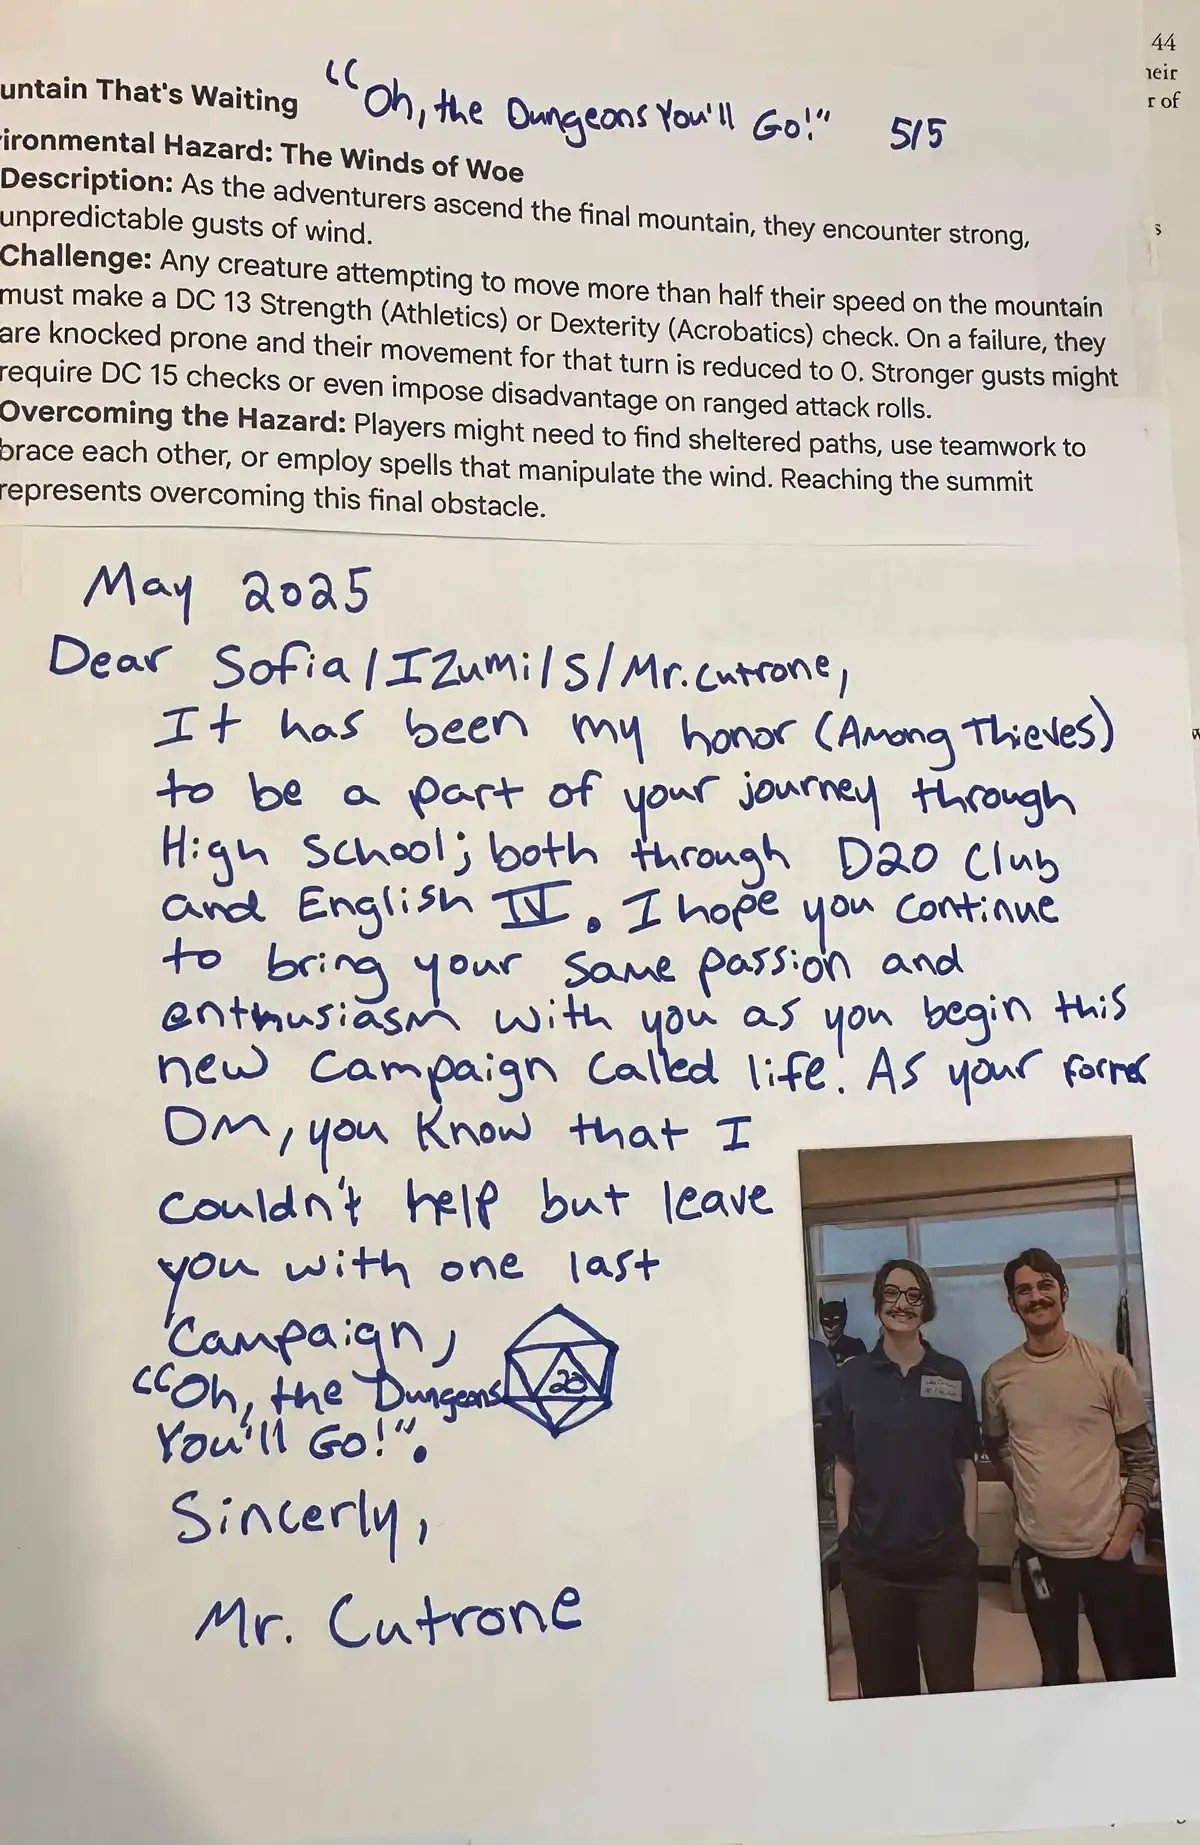 44
heir
r of
untain That's Waiting
"Oh, the Dungeons You'll Go!" 5/5
ironmental Hazard: The Winds of Woe
Description: As the adventurers ascend the final mountain, they encounter strong,
unpredictable gusts of wind.
s
Challenge: Any creature attempting to move more than half their speed on the mountain
must make a DC 13 Strength (Athletics) or Dexterity (Acrobatics) check. On a failure, they
are knocked prone and their movement for that turn is reduced to 0. Stronger gusts might
require DC 15 checks or even impose disadvantage on ranged attack rolls.
Overcoming the Hazard: Players might need to find sheltered paths, use teamwork to
brace each other, or employ spells that manipulate the wind. Reaching the summit
represents overcoming this final obstacle.
May 2025
Dear Sofia/Izumi/S/Mr.Cutrone,
It has been my honor (Among Thieves)
to be a part of your journey through
High School; both through D20 Club
and English IV. I hope you continue
to bring your same passion and
enthusiasm with you as you begin this
new campaign called life. As your former
DM, you know that I
couldn't help but leave
you with one last
campaign,
"Oh, the Dungeons
You'll Go!".
20
Sincerly,
Mr. Cutrone